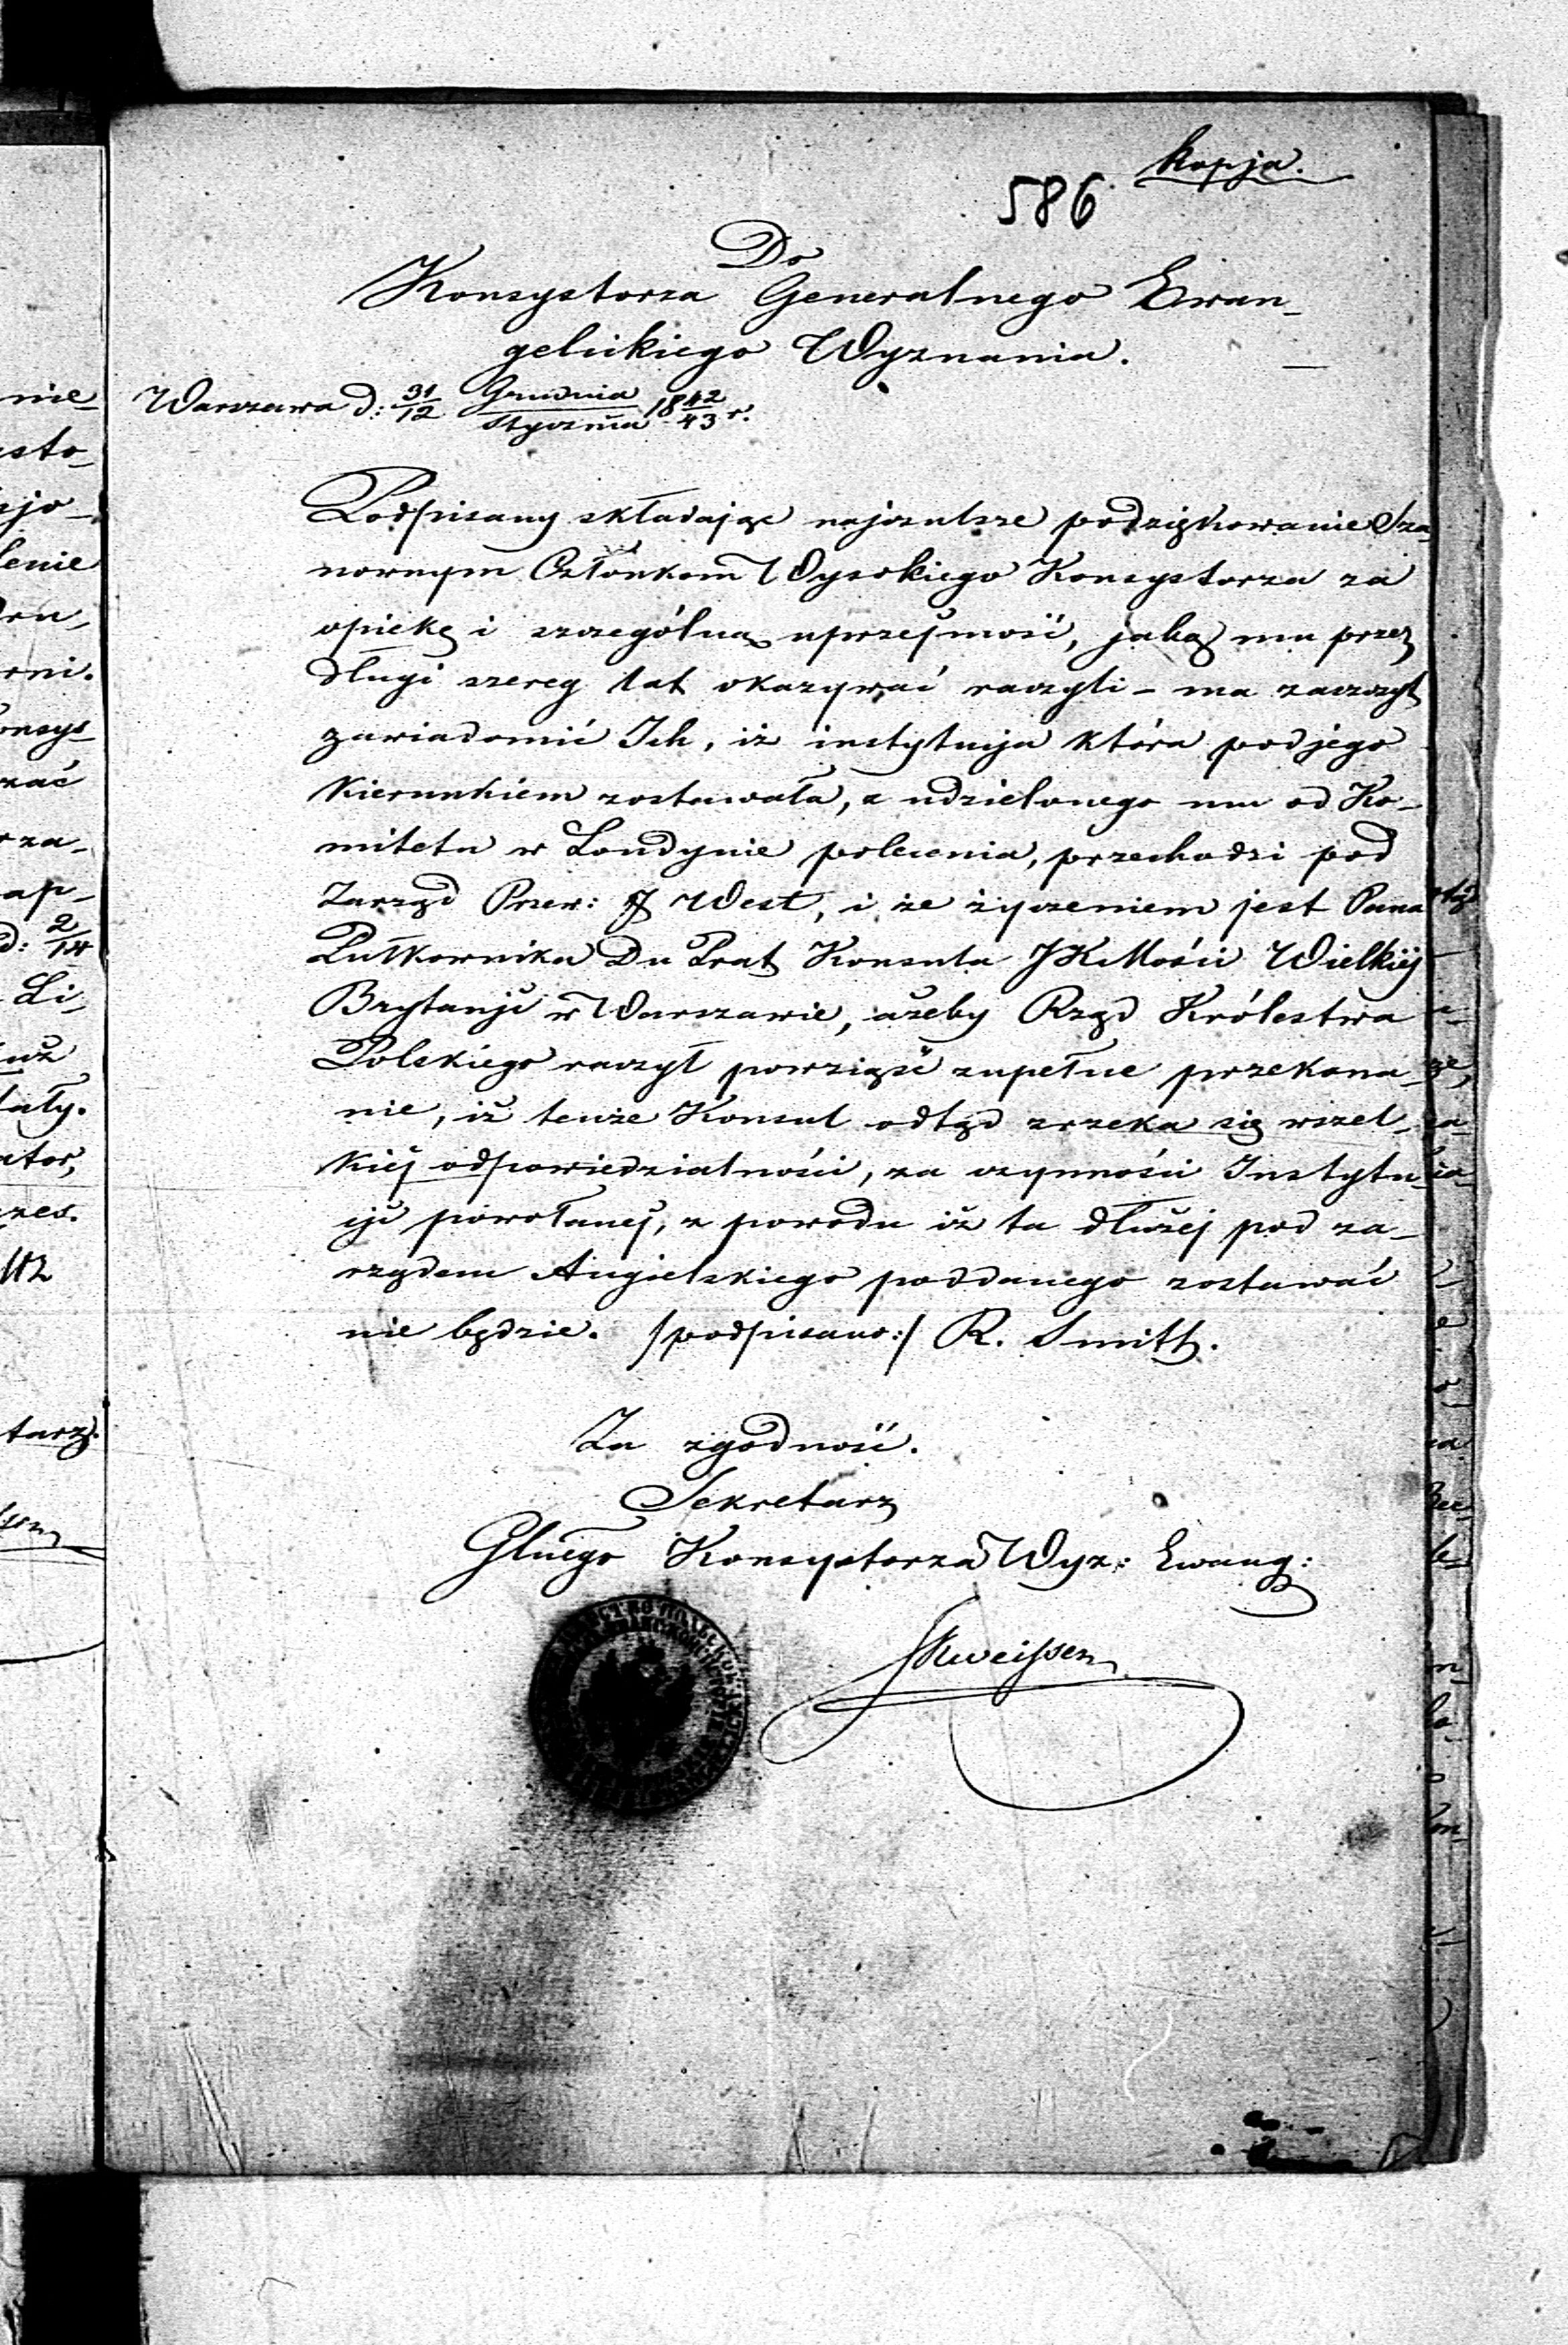 kopja.
586
Do
Konsystorza Generalnego Ewan_
gelickiego Wyznania.
Warszawa d: 31/12 Grudnia/Stycznia 18 42/43 r.
Podpisany składając najczulsze podziękowanie Sza
nownym Członkom Wysokiego Konsystorza za
opiekę i szczególną uprzejmość, jaką mu przez
długi szereg lat okazywać raczyli – ma zaszczyt
zawiadomić Ich, iż instytucija która pod jego
Kierunkiem zostawała, z udzielonego mu od Ko_
mitetu w Londynie polecenia, przechodzi pod
Zarząd Przew: J West, i że życzeniem jest Pana
Pułkownika Du Plat Konsula JKMości Wielkiéj
Brytanji w Warszawie, ażeby Rząd Królestwa
Polskiego raczył powziąść zupełne przekona_
nie, iż tenże Konsul odtąd zrzeka się wszel_
kiéj odpowiedzialności, za czynności Instytu_
cji powołanéj, z powodu iż ta dłużéj pod za_
rządem Angielskiego poddanego zostawać
nie będzie. /podpisano:/ R. Smith.
Za zgodność.
Sekretarz
Glnego Konsystorza Wyz: Ewang: